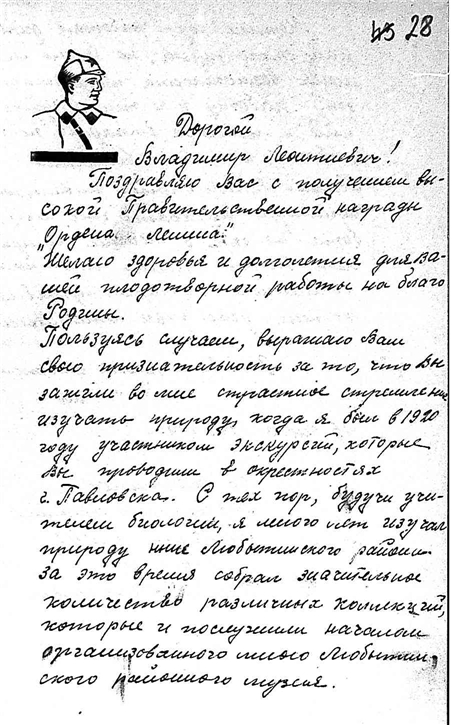 28
Дорогой
Владимир Леонтиевич!
Поздравляю Вас с получением вы-
сокой Правительственной награды
"Ордена Ленина."
Желаю здоровья и долголетия для Ва-
шей плодотворной работы на благо
Родины.
Пользуясь случаем, выражаю Вам
свою признательность за то, что Вы
зажгли во мне страстное стремление
изучать природу, когда я был в 1920
году участником экскурсий, которые
Вы проводили в окрестностях
г. Павловска. С тех пор, будучи учи-
телем биологии, я много лет изучал
природу ныне Любытинского района.
За это время собрал значительное
количество различных коллекций,
которые и послужили началом
организованного мною Любытин-
ского районного музея.